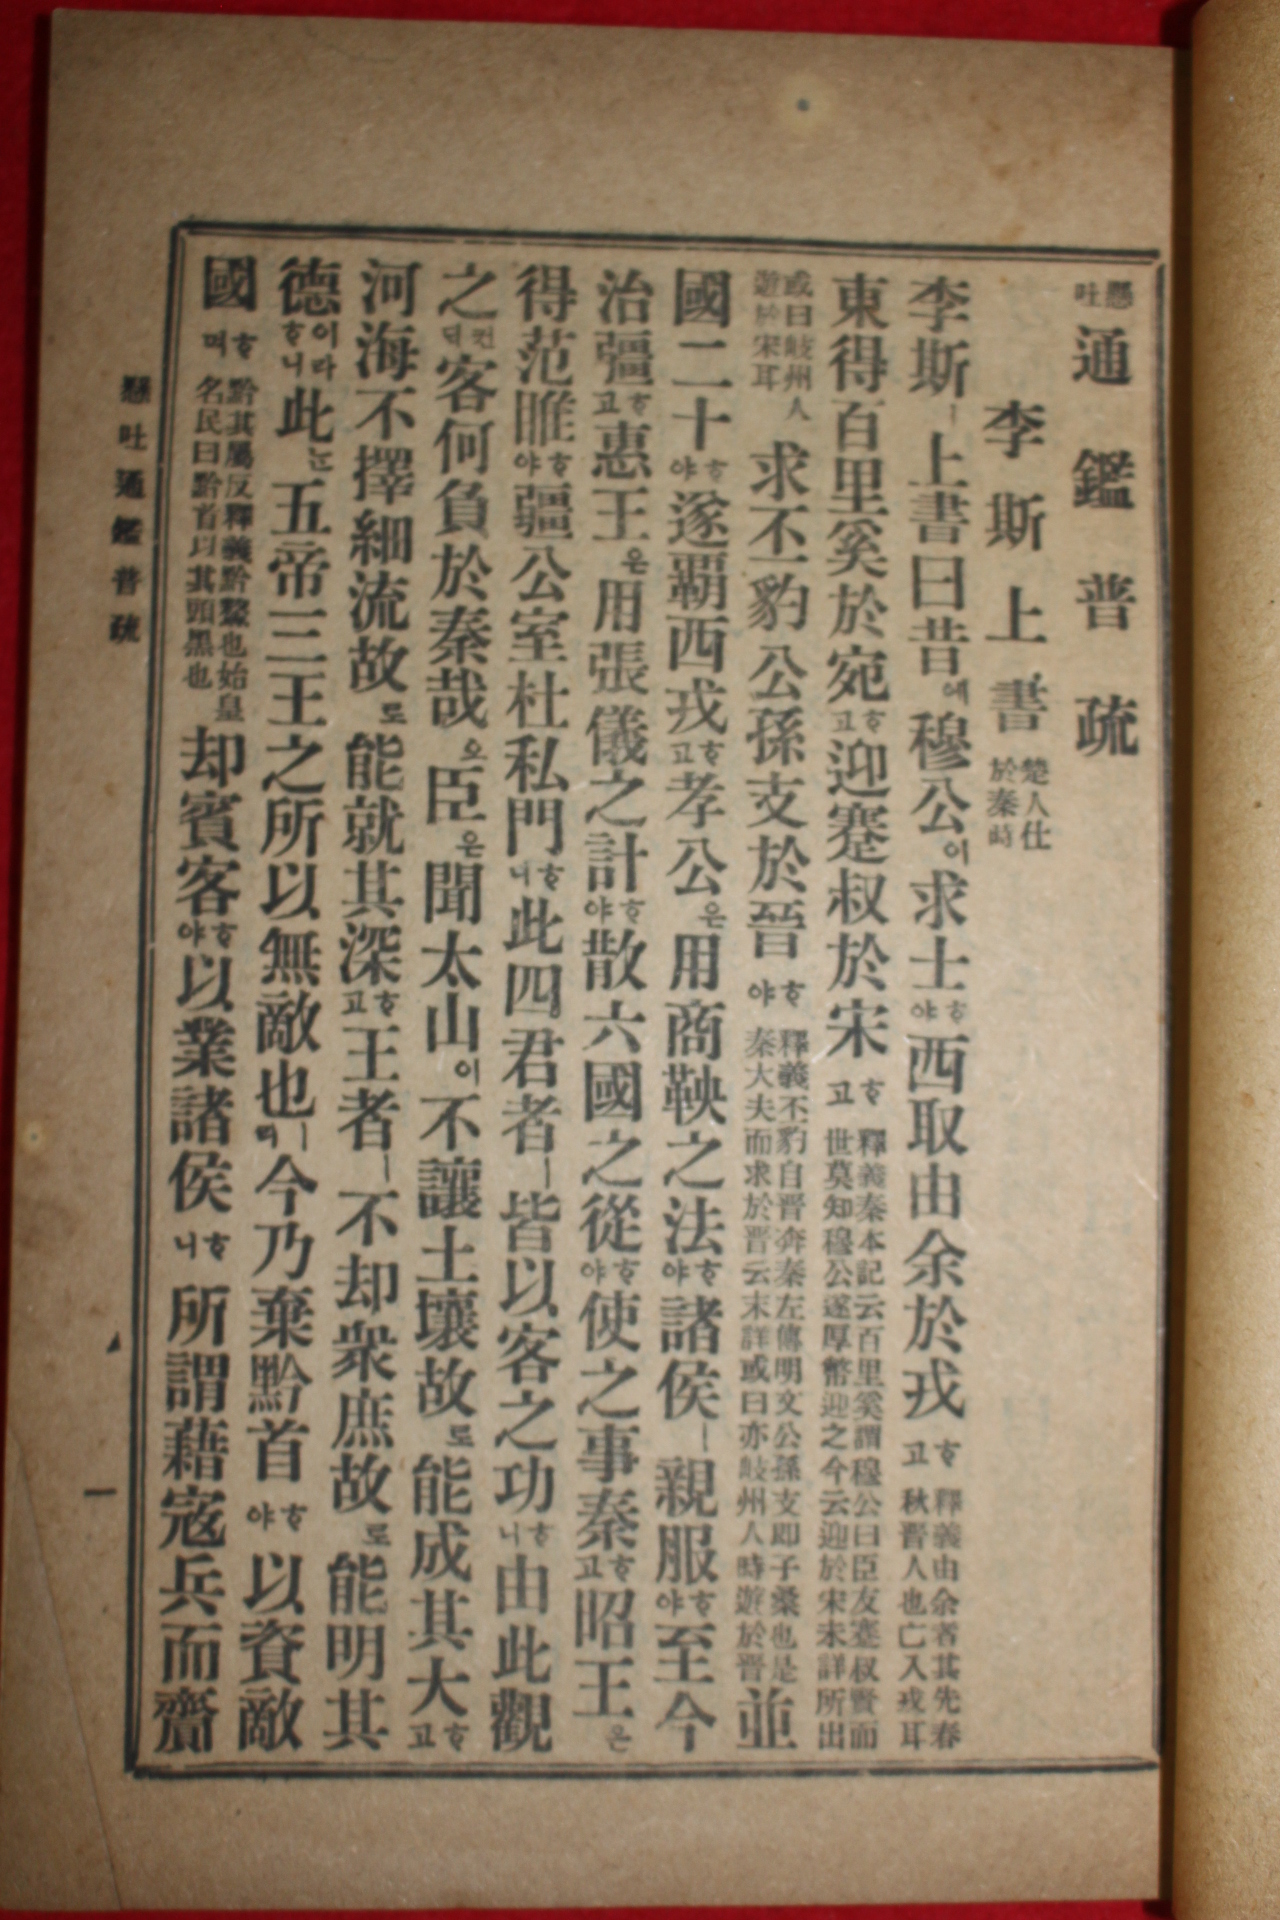 懸吐通鑑普疏
李斯上書 楚人仕於秦時
李斯ㅣ上書曰昔에穆公이求士ᄒᆞ야西取由余於戎ᄒᆞ고 釋義由余者其先春秋晉人也亡入戎耳
東得百里奚於宛ᄒᆞ고迎蹇叔於宋ᄒᆞ고 釋義秦本記云百里奚謂穆公曰臣友蹇叔賢而世莫知穆公遂厚幣迎之今云迎於宋未詳所出
或曰歧州人遊於宋耳 求丕豹公孫支於晉ᄒᆞ야 釋義丕豹自晉奔秦左傳明文公孫支即子桑也是秦大夫而求於晉云未詳或曰亦歧州人時遊於晉 並
國二十ᄒᆞ야遂覇西戎ᄒᆞ고孝公은用商鞅之法ᄒᆞ야諸侯ㅣ親服ᄒᆞ야至今
治彊ᄒᆞ고惠王은用張儀之計ᄒᆞ야散六國之從ᄒᆞ야使之事秦ᄒᆞ고昭王은
得范睢ᄒᆞ야疆公室杜私門ᄒᆞ니此四君者ㅣ皆以客之功ᄒᆞ니由此觀
之컨ᄃᆡ客何負於秦哉오臣은聞太山이不讓土壤故로能成其大ᄒᆞ고
河海不擇細流故로能就其深ᄒᆞ고王者ㅣ不却衆庶故로能明其
德이라ᄒᆞ니此ᄂᆞᆫ五帝三王之所以無敵也ㅣ며今乃棄黔首ᄒᆞ야以資敵
國ᄒᆞ며 黔其屬反釋義黔黧也始皇名民曰黔首以其頭黑也 却賓客ᄒᆞ야以業諸侯ᄒᆞ니所謂藉寇兵而齎
懸吐通鑑普疏 一